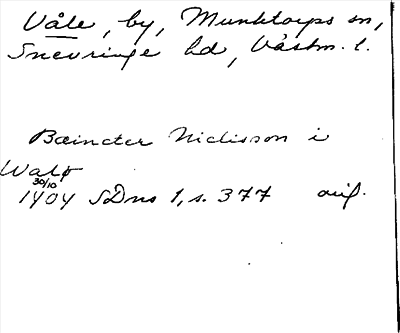 Våle, by, Munktorps sn,
Snevringe hd, Västm. l.
Bæincter Niclisson i
Walø
30/10
1404 SDns 1, s. 377 avif.